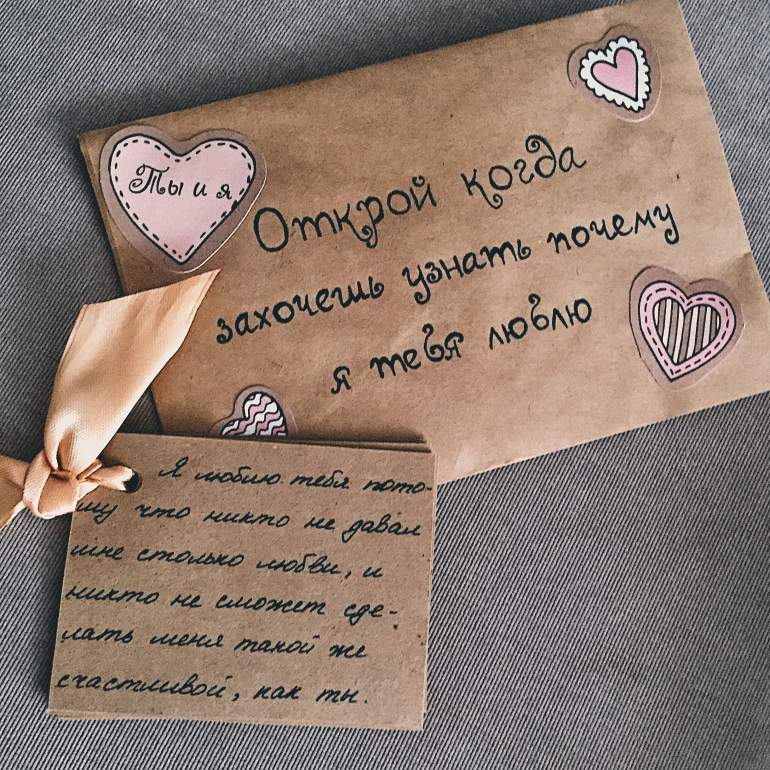 Ты и я
Открой когда
захочешь узнать почему
я тебя люблю
Я люблю тебя пото-
му что никто не давал
мне столько любви, и
никто не сможет сде-
лать меня такой же
счастливой, как ты.